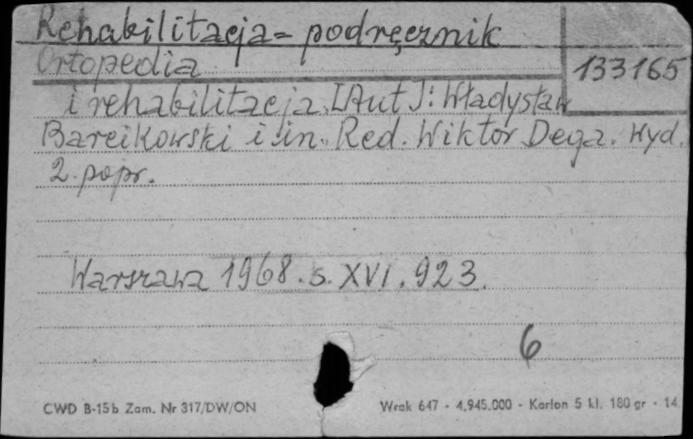 Rehabilitacja - podręcznik
Ortopedia
133165
i rehabilitacja. [Aut]: Władysław
Bareikowski i in. Red. Wiktor Dega. Wyd.
2. popr.
Warszawa 1968. s. XVI. 923.
6
CWD B-15b Zam. Nr 317/DW/ON
Wrak 647 - 4,945.000 - Karton 5 kl. 180 gr - 14